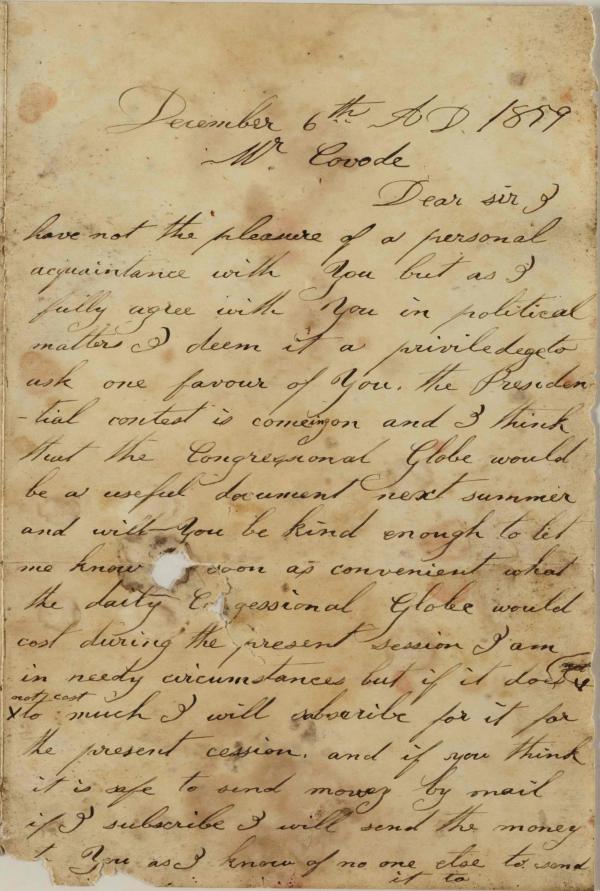 December 6th A D. 1859
Mr Covode
Dear sir I
have not the pleasure of a personal
acquaintance with You but as I
fully agree with You in political
matters I deem it a priviledge to
ask one favour of You. the Presiden
-tial contest is comeing on and I think
that the Congressional Globe would
be a useful document next summer
and will You be kind enough to let
me know soon as convenient what
the daily Co gessional Globe would
cost during the present session I am
in needy circumstances but if it does
not cost
x to much I will subscribe for it for
the present cession. and if you think
it is safe to send money by mail
if I subscribe I will send the money
t You as I know of no one else to send
it to